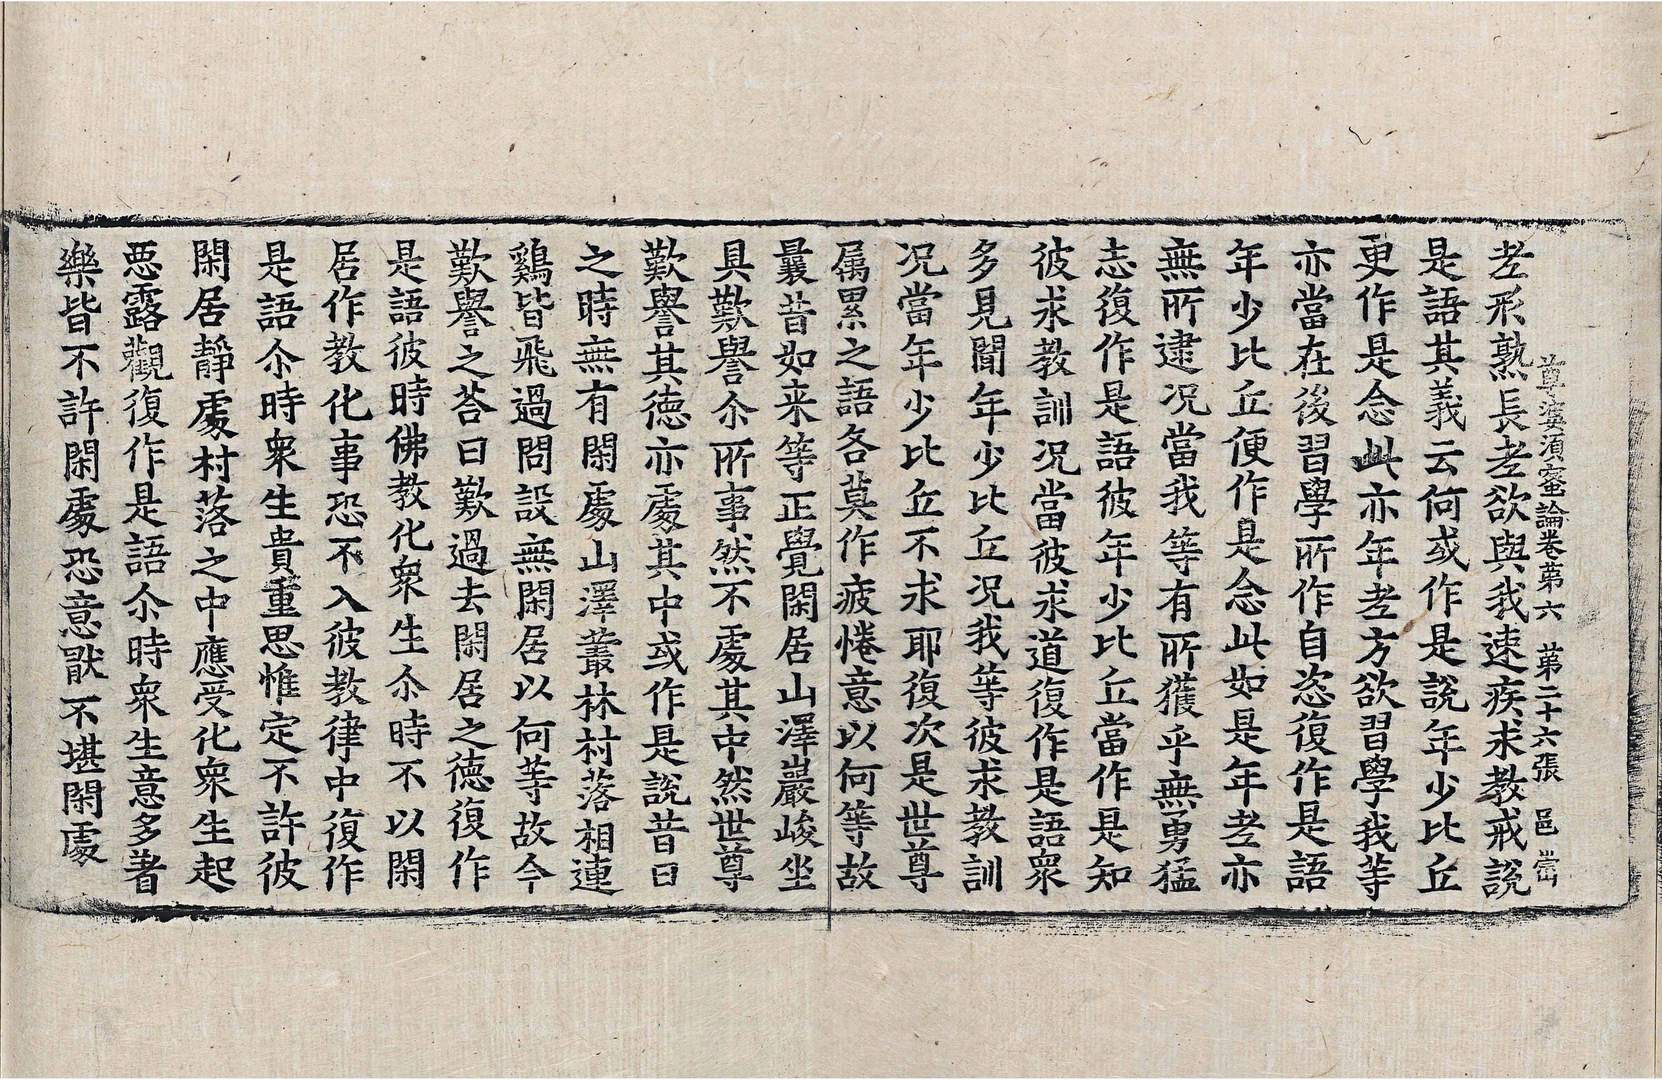 尊婆須蜜論卷第六　第二十六張　邑
老形熟長老欲與我速疾求教戒說
是語其義云何或作是說年少比丘
更作是念此亦年老方欲習學我等
亦當在後習學所作自恣復作是語
年少比丘便作是念此如是年老亦
無所逮況當我等有所獲乎無勇猛
志復作是語彼年少比丘當作是知
彼求教訓況當彼求道復作是語衆
多見聞年少比丘況我等彼求教訓
況當年少比丘不求耶復次是世尊
属累之語各莫作疲惓意以何等故
曩昔如来等正覺閑居山澤巖峻坐
具歎譽尒所事然不處其中然世尊
歎譽其德亦處其中或作是說昔日
之時無有閑處山澤叢林村落相連
鷄皆飛過問設無閑居以何等故今
歎譽之荅曰歎過去閑居之德復作
是語彼時佛教化衆生尒時不以閑
居作教化事恐不入彼教律中復作
是語尒時衆生貴重思惟定不許彼
閑居靜處村落之中應受化衆生起
惡露觀復作是語尒時衆生意多著
樂皆不許閑處恐意猒不堪閑處